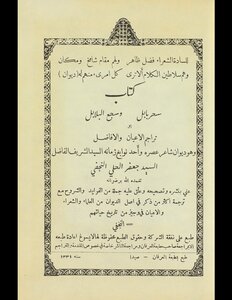 للسادة الشعراء فضل ظاهر ولهم مقام شامخ ومكان
وهم سلاطين الكلام ألا ترى كل امرئ منهم له (ديوان)
كتاب
سحر بابل وسجع البلابل
او
تراجم الاعيان والافاضل
وهو ديوان شاعر عصره وأحد نوابغ زمانه السيد الشريف الفاضل
السيد جعفر الحلي النجفي
تغمده الله برضوانه
عني بنشره وتصحيحه وعلق عليه جملة من الفوايد والشروح مع
ترجمة اكثر من ذكر في اصل الديوان من العلماء والشعراء
والاعيان في وجيز من تاريخ حياتهم
النجفي
طبع على نفقة الشركة وحقوق الطبع محفوظة فلا يسوغ اعادة طبعه
طبع بمطبعة العرفان - صيدا سنة ١٣٣١